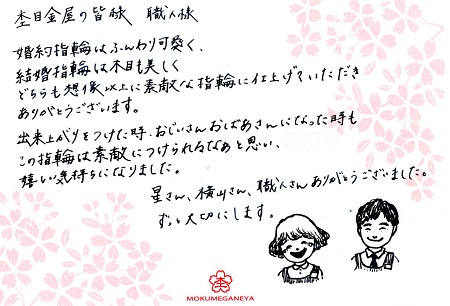 杢目金屋の皆様　職人様
婚約指輪はふんわり可愛く、
結婚指輪は木目も美しく
どちらも想像以上に素敵な指輪に仕上げていただき
ありがとうございます。
出来上がりをつけた時、おじいさんおばあさんになった時も
この指輪は素敵につけられるなあと思い、
嬉しい気持ちになりました。
星さん、横山さん、職人さんありがとうございました。
ずっと大切にします。
MOKUMEGANEYA